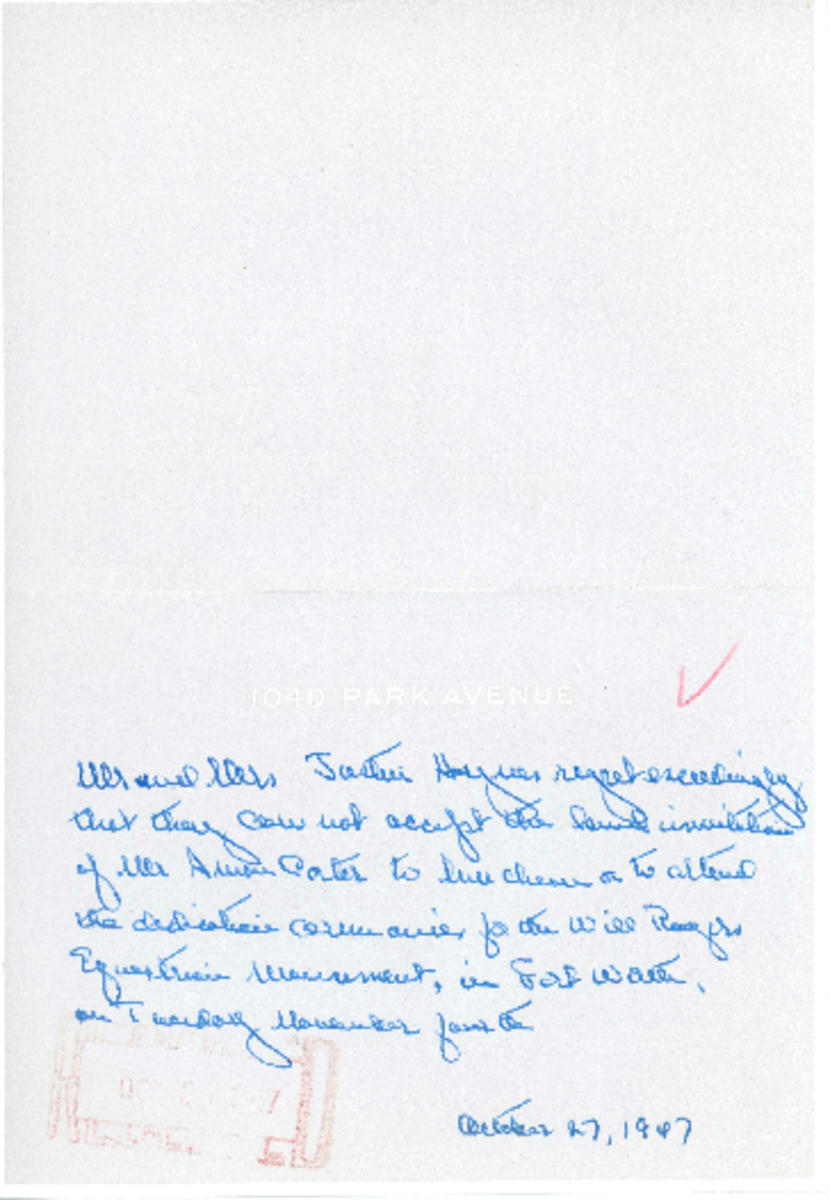 1040 PARK AVENUE
Mr and Mrs Justin Haynes regret exceedingly
that they can not accept the kind invitation
of Mr Amon Carter to luncheon or to attend
the dedication ceremonies for the Will Rogers
Equestrian Monument, in Fort Worth,
on Tuesday November fourth
October 27, 1947